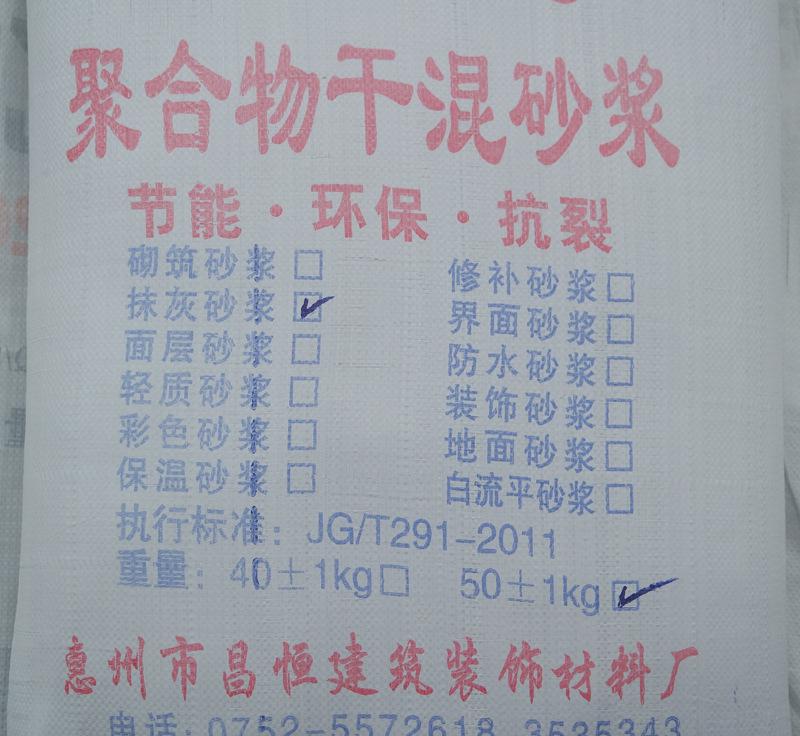 聚合物干混砂浆
节能·环保·抗裂
砌筑砂浆□ 修补砂浆□
抹灰砂浆☑ 界面砂浆□
面层砂浆□ 防水砂浆□
轻质砂浆□ 装饰砂浆□
彩色砂浆□ 地面砂浆□
保温砂浆□ 白流平砂浆□
执行标准：JG/T291-2011
重量：40±1kg□ 50±1kg☑
惠州市昌恒建筑装饰材料厂
电话：0752-5572618 3535343